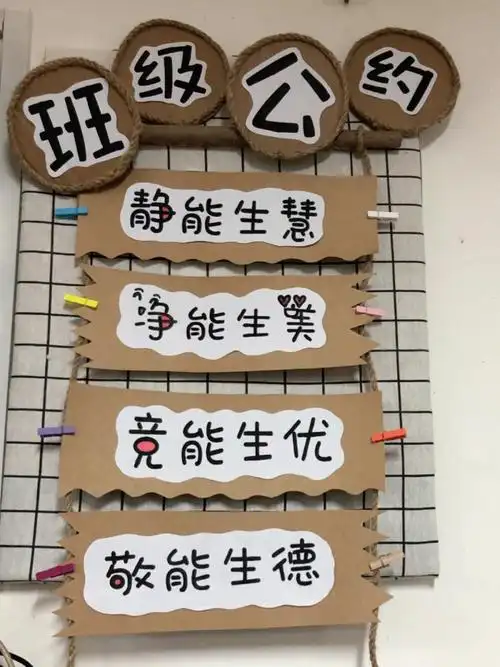 班级公约
静能生慧
净能生美
竞能生优
敬能生德